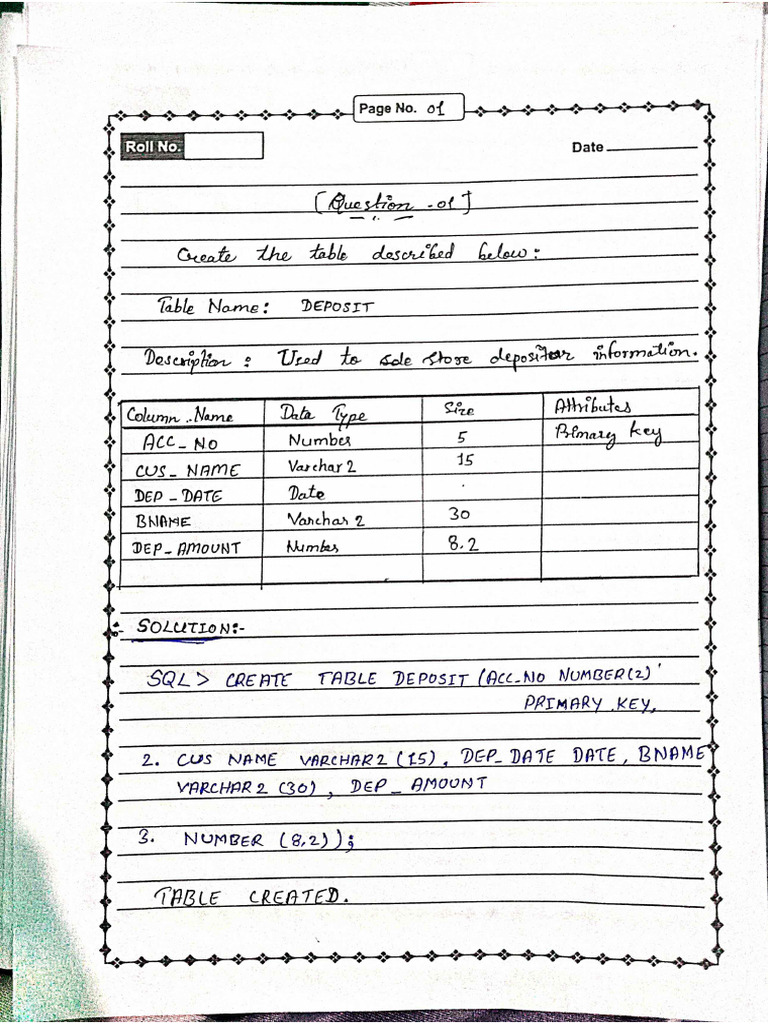 Page No. 01
Roll No.
Date
[Question -01]
Create the table described below:
Table Name: DEPOSIT
Description: Used to sole store depositer information.
Column Name Data Type Size Attributes
ACC_NO Number 5 Primary Key
CUS_NAME Varchar2 15
DEP_DATE Date
BNAME Varchar2 30
DEP_AMOUNT Number 8.2
:- SOLUTION:-
SQL> CREATE TABLE DEPOSIT (ACC_NO NUMBER(2)'
PRIMARY KEY,
2. CUS NAME VARCHAR2 (15), DEP_DATE DATE, BNAME
VARCHAR2 (30), DEP_AMOUNT
3. NUMBER (8,2));
TABLE CREATED.